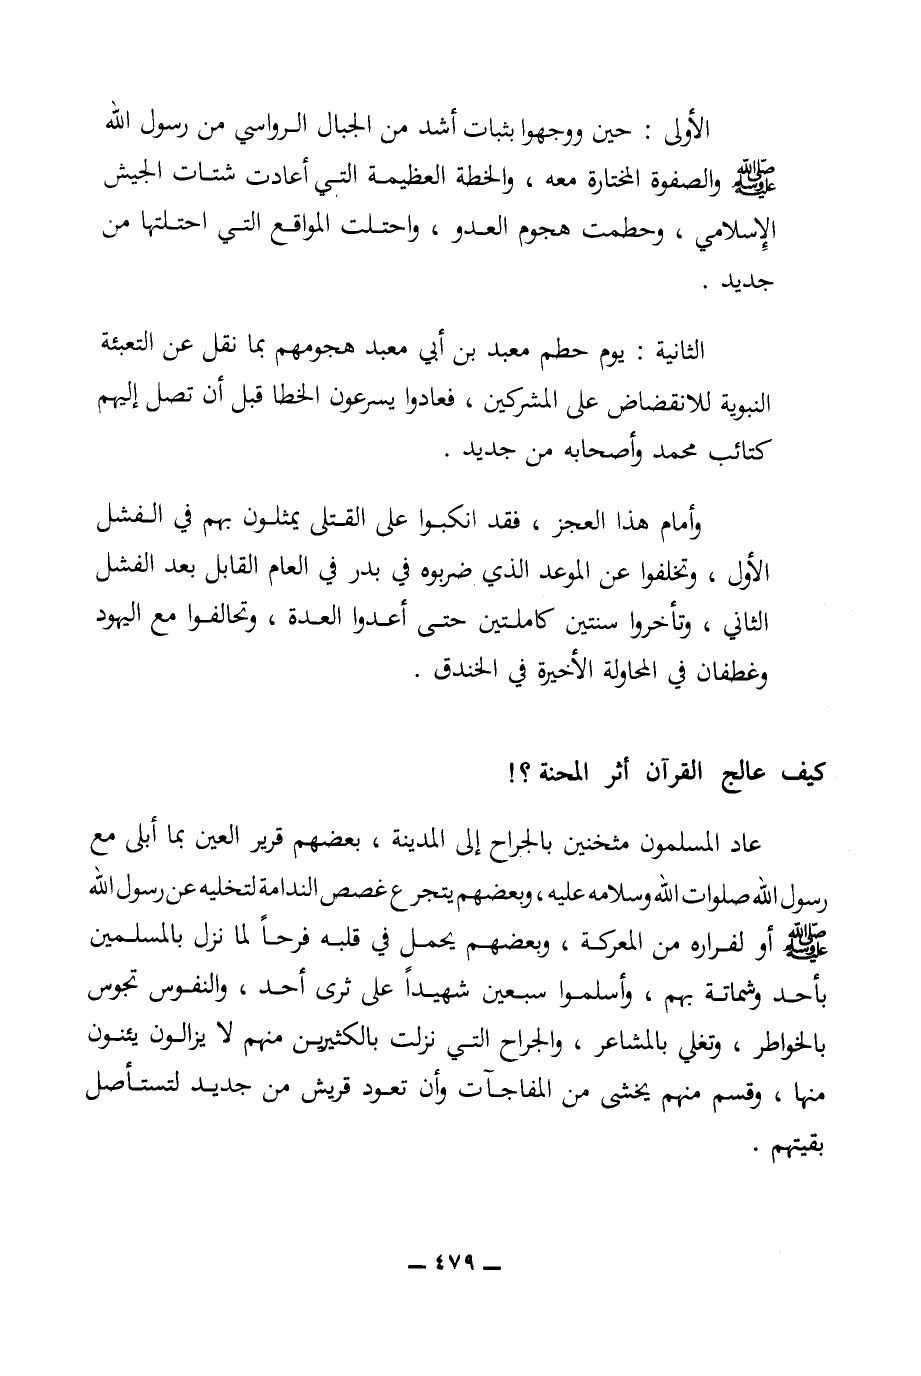 الأولى : حين ووجهوا بثبات أشد من الجبال الرواسي من رسول الله
ﷺ والصفوة المختارة معه ، والخطة العظيمة التي أعادت شتات الجيش
الإسلامي ، وحطمت هجوم العدو ، واحتلت المواقع التي احتلتها من
جديد .
الثانية : يوم حطم معبد بن أبي معبد هجومهم بما نقل عن التعبئة
النبوية للانقضاض على المشركين ، فعادوا يسرعون الخطا قبل أن تصل إليهم
كتائب محمد وأصحابه من جديد .
وأمام هذا العجز ، فقد انكبوا على القتلى يمثلون بهم في الفشل
الأول ، وتخلفوا عن الموعد الذي ضربوه في بدر في العام القابل بعد الفشل
الثاني ، وتأخروا سنتين كاملتين حتى أعدوا العدة ، وتحالفوا مع اليهود
وغطفان في المحاولة الأخيرة في الخندق .
كيف عالج القرآن أثر المحنة ؟!
عاد المسلمون مثخنين بالجراح إلى المدينة ، بعضهم قرير العين بما أبلى مع
رسول الله صلوات الله وسلامه عليه ، وبعضهم يتجرع غصص الندامة لتخليه عن رسول الله
ﷺ أو لفراره من المعركة ، وبعضهم يحمل في قلبه فرحاً لما نزل بالمسلمين
بأحد وشماتة بهم ، وأسلموا سبعين شهيداً على ثرى أحد ، والنفوس تجوس
بالخواطر ، وتغلي بالمشاعر ، والجراح التي نزلت بالكثيرين منهم لا يزالون يئنون
منها ، وقسم منهم يخشى من المفاجآت وأن تعود قريش من جديد لتستأصل
بقيتهم .
– ٤٧٩ –